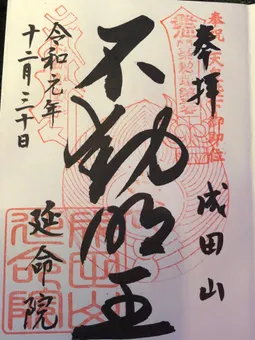 奉拝
成田山
不動明王
令和元年
十二月三十日
延命院